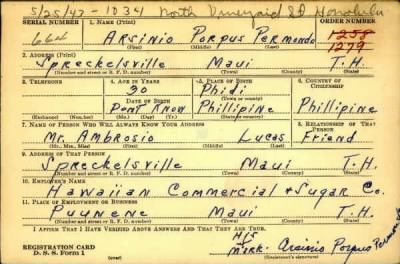 5/25/47 - 1034 North Vineyard St Honolulu
SERIAL NUMBER 1. NAME (Print) ORDER NUMBER
664 Arsinio Porpus Permondo 1258
(First) (Middle) (Last) 1279
2. ADDRESS (Print)
Spreckelsville Maui T.H.
(Number and street or R. F. D. number) (Town) (County) (State)
3. TELEPHONE 4. AGE IN YEARS 5. PLACE OF BIRTH 6. COUNTRY OF CITIZENSHIP
30 Phidi
DATE OF BIRTH (Town or county)
Dont Know Phillipine Phillipine
(Exchange) (Number) (Mo.) (Day) (Yr.) (State or country)
7. NAME OF PERSON WHO WILL ALWAYS KNOW YOUR ADDRESS 8. RELATIONSHIP OF THAT PERSON
Mr. Ambrosio Lucas Friend
(Mr., Mrs., Miss) (First) (Middle) (Last)
9. ADDRESS OF THAT PERSON
Spreckelsville Maui T.H.
(Number and street or R. F. D. number) (Town) (County) (State)
10. EMPLOYER'S NAME
Hawaiian Commercial & Sugar Co.
11. PLACE OF EMPLOYMENT OR BUSINESS
Puunene Maui T.H.
(Number and street or R. F. D. number) (Town) (County) (State)
I AFFIRM THAT I HAVE VERIFIED ABOVE ANSWERS AND THAT THEY ARE TRUE.
His
REGISTRATION CARD mark. Arsinio Porpus
D. S. S. Form 1 (Registrant's signature)